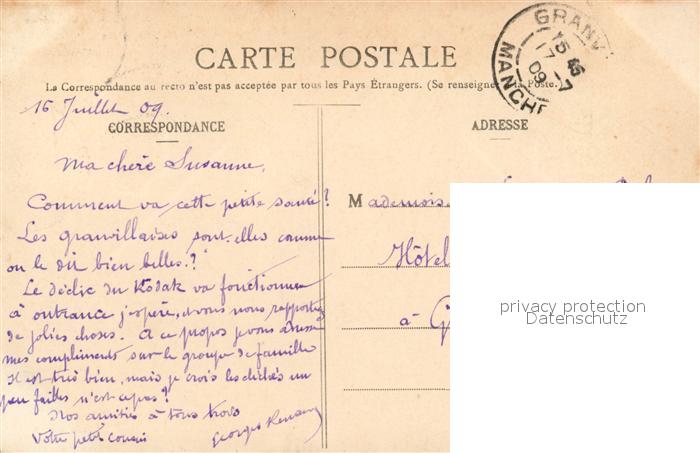 CARTE POSTALE
La Correspondance au recto n'est pas acceptée par tous les Pays Étrangers. (Se renseigner à la Poste.)
GRANV
15 45
17 -7
09
MANCHE
16 Juillet 09.
CORRESPONDANCE
ADRESSE
Ma chère Susanne,
Comment va cette petite santé?
Les granvillaises sont-elles comme
on le dit bien belles?
Le déclic du Kodak va fonctionner
à outrance j'espère, et vous nous rapporterez
de jolies choses. A ce propos je vous adresse
mes compliments sur le groupe de famille
il est très bien, mais je crois les clichés un
peu faibles n'est ce pas?
Nos amitiés à tous trois
Votre petit cousin
Georges
Mademois
Hôtel
à G
privacy protection
Datenschutz